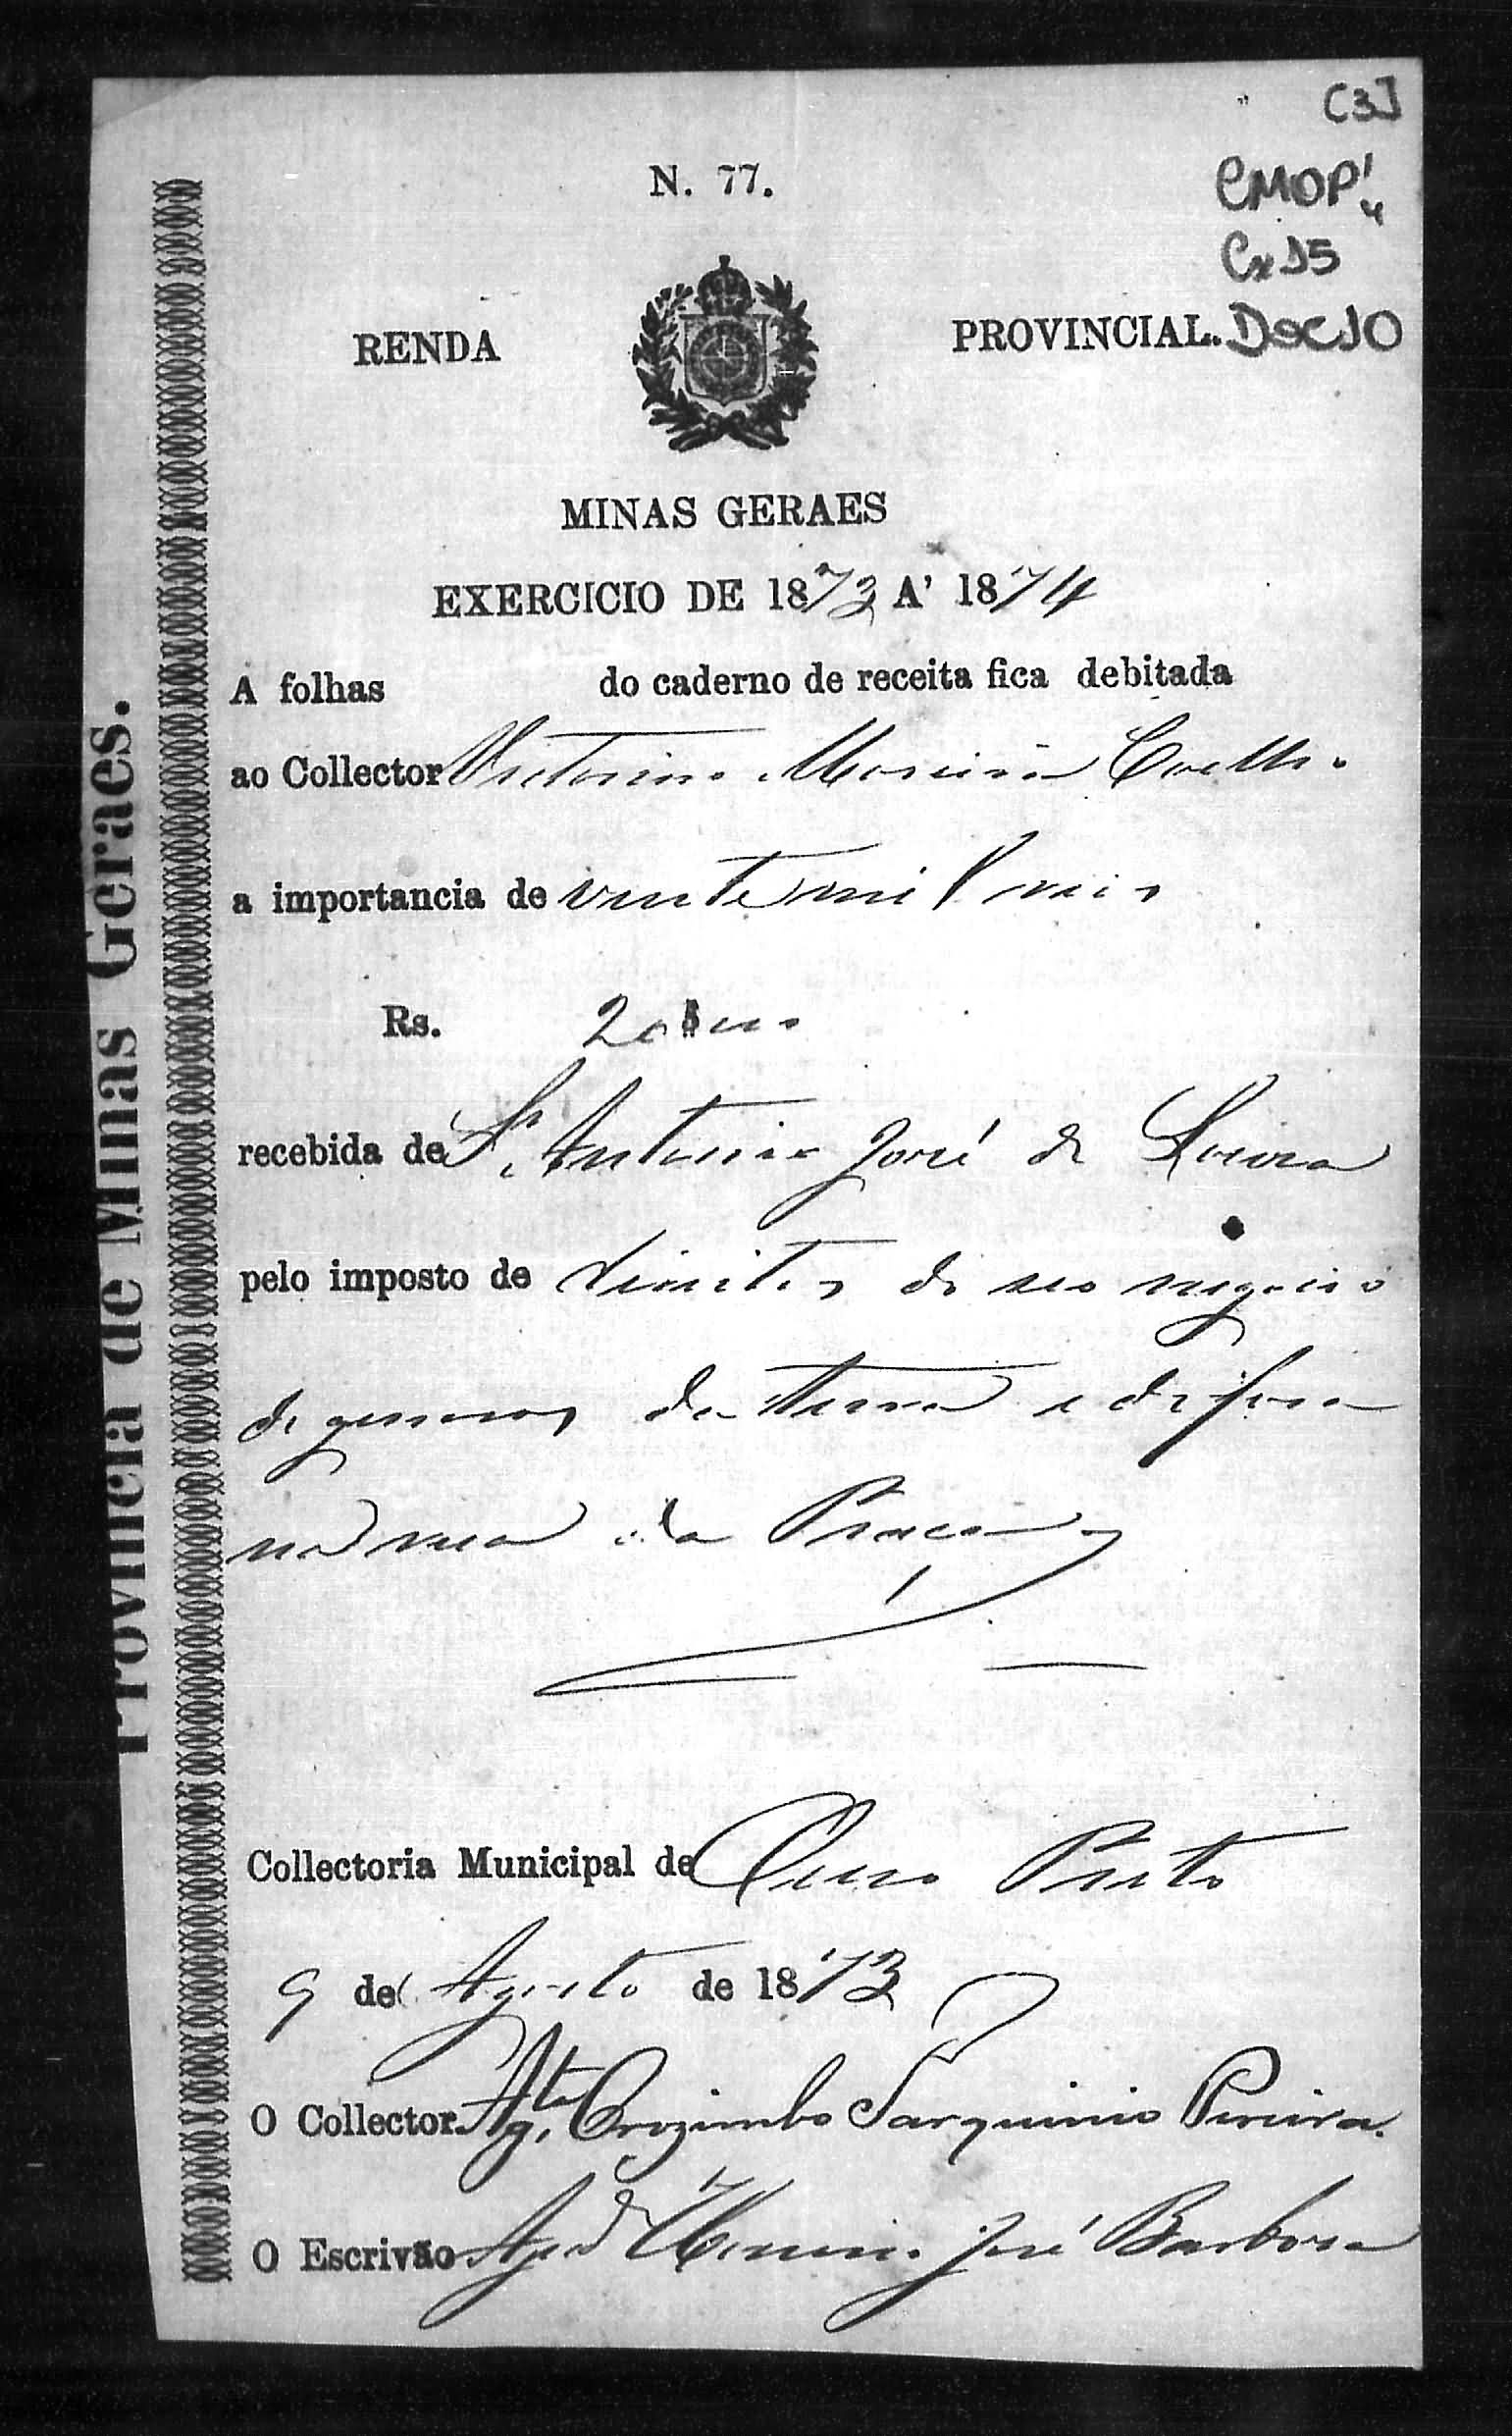 [3]
N. 77.
CMOP
Cx 15
RENDA PROVINCIAL. Doc 10
MINAS GERAES
EXERCICIO DE 1873 A' 1874
A folhas do caderno de receita fica debitada
ao Collector Victorino Moreira Coelho
a importancia de vinte mil reis
Rs. 20$
recebida de Sr. Antonio José de
pelo imposto de direitos de seo negocio
de generos da terra e de fora
na rua da Praça
Collectoria Municipal de Ouro Preto
9 de Agosto de 1873
O Collector Agte. Orozimbo Tarquinio Pereira.
O Escrivão José Barbosa
Provincia de Minas Geraes.